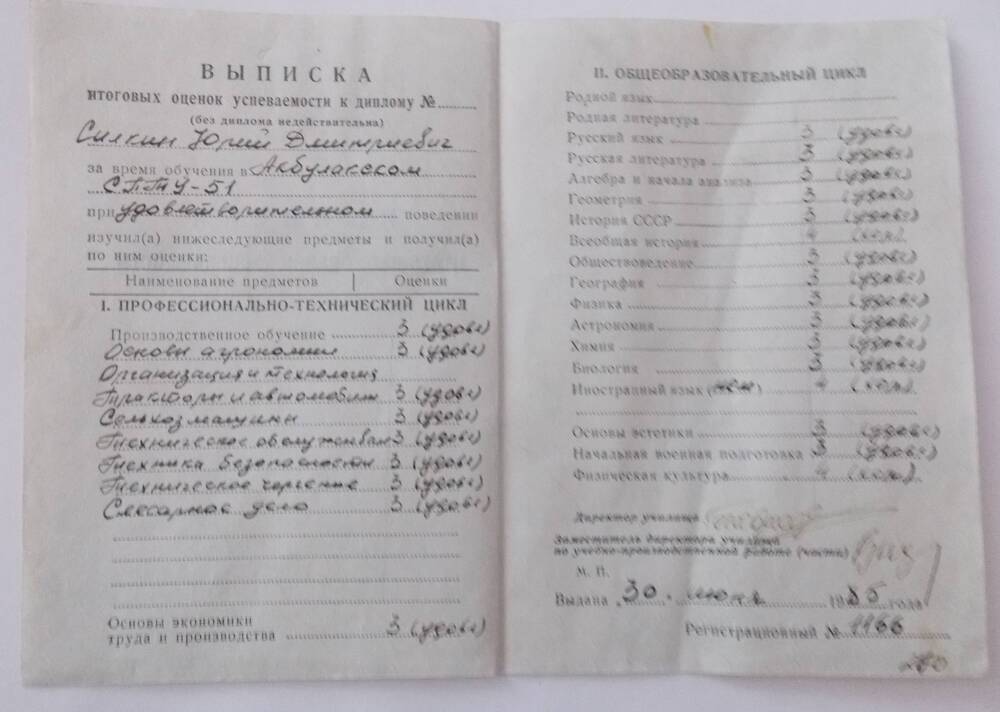 ВЫПИСКА
итоговых оценок успеваемости к диплому №
(без диплома недействительна)
Силкин Юрий Дмитриевич
за время обучения в Акбулакском
СПТУ-51
при удовлетворительном поведении
изучил(а) нижеследующие предметы и получил(а)
по ним оценки:
Наименование предметов Оценки
I. ПРОФЕССИОНАЛЬНО-ТЕХНИЧЕСКИЙ ЦИКЛ
Производственное обучение 3 (удовл)
Основы агрономии 3 (удовл)
Организация и технология
Тракторы и автомобили 3 (удовл)
Сельхозмашины 3 (удовл)
Техническое обслуживан 3 (удовл)
Техника безопасности 3 (удовл)
Техническое черчение 3 (удовл)
Слесарное дело 3 (удовл)
Основы экономики
труда и производства 3 (удовл)
II. ОБЩЕОБРАЗОВАТЕЛЬНЫЙ ЦИКЛ
Родной язык
Родная литература
Русский язык 3 (удовл)
Русская литература 3 (удовл)
Алгебра и начала анализа 3 (удовл)
Геометрия 3 (удовл)
История СССР 3 (удовл)
Всеобщая история 4 (хор).
Обществоведение 3 (удовл)
География 3 (удовл)
Физика 3 (удовл)
Астрономия 3 (удовл)
Химия 3 (удовл)
Биология 3 (удовл)
Иностранный язык (нем) 4 (хор).
Основы эстетики 3 (удовл)
Начальная военная подготовка 3 (удовл)
Физическая культура 4 (хор).
Директор училища
Заместитель директора училища
по учебно-производственной работе (части)
М. П.
Выдана 30. июня 1985 года
Регистрационный № 1166